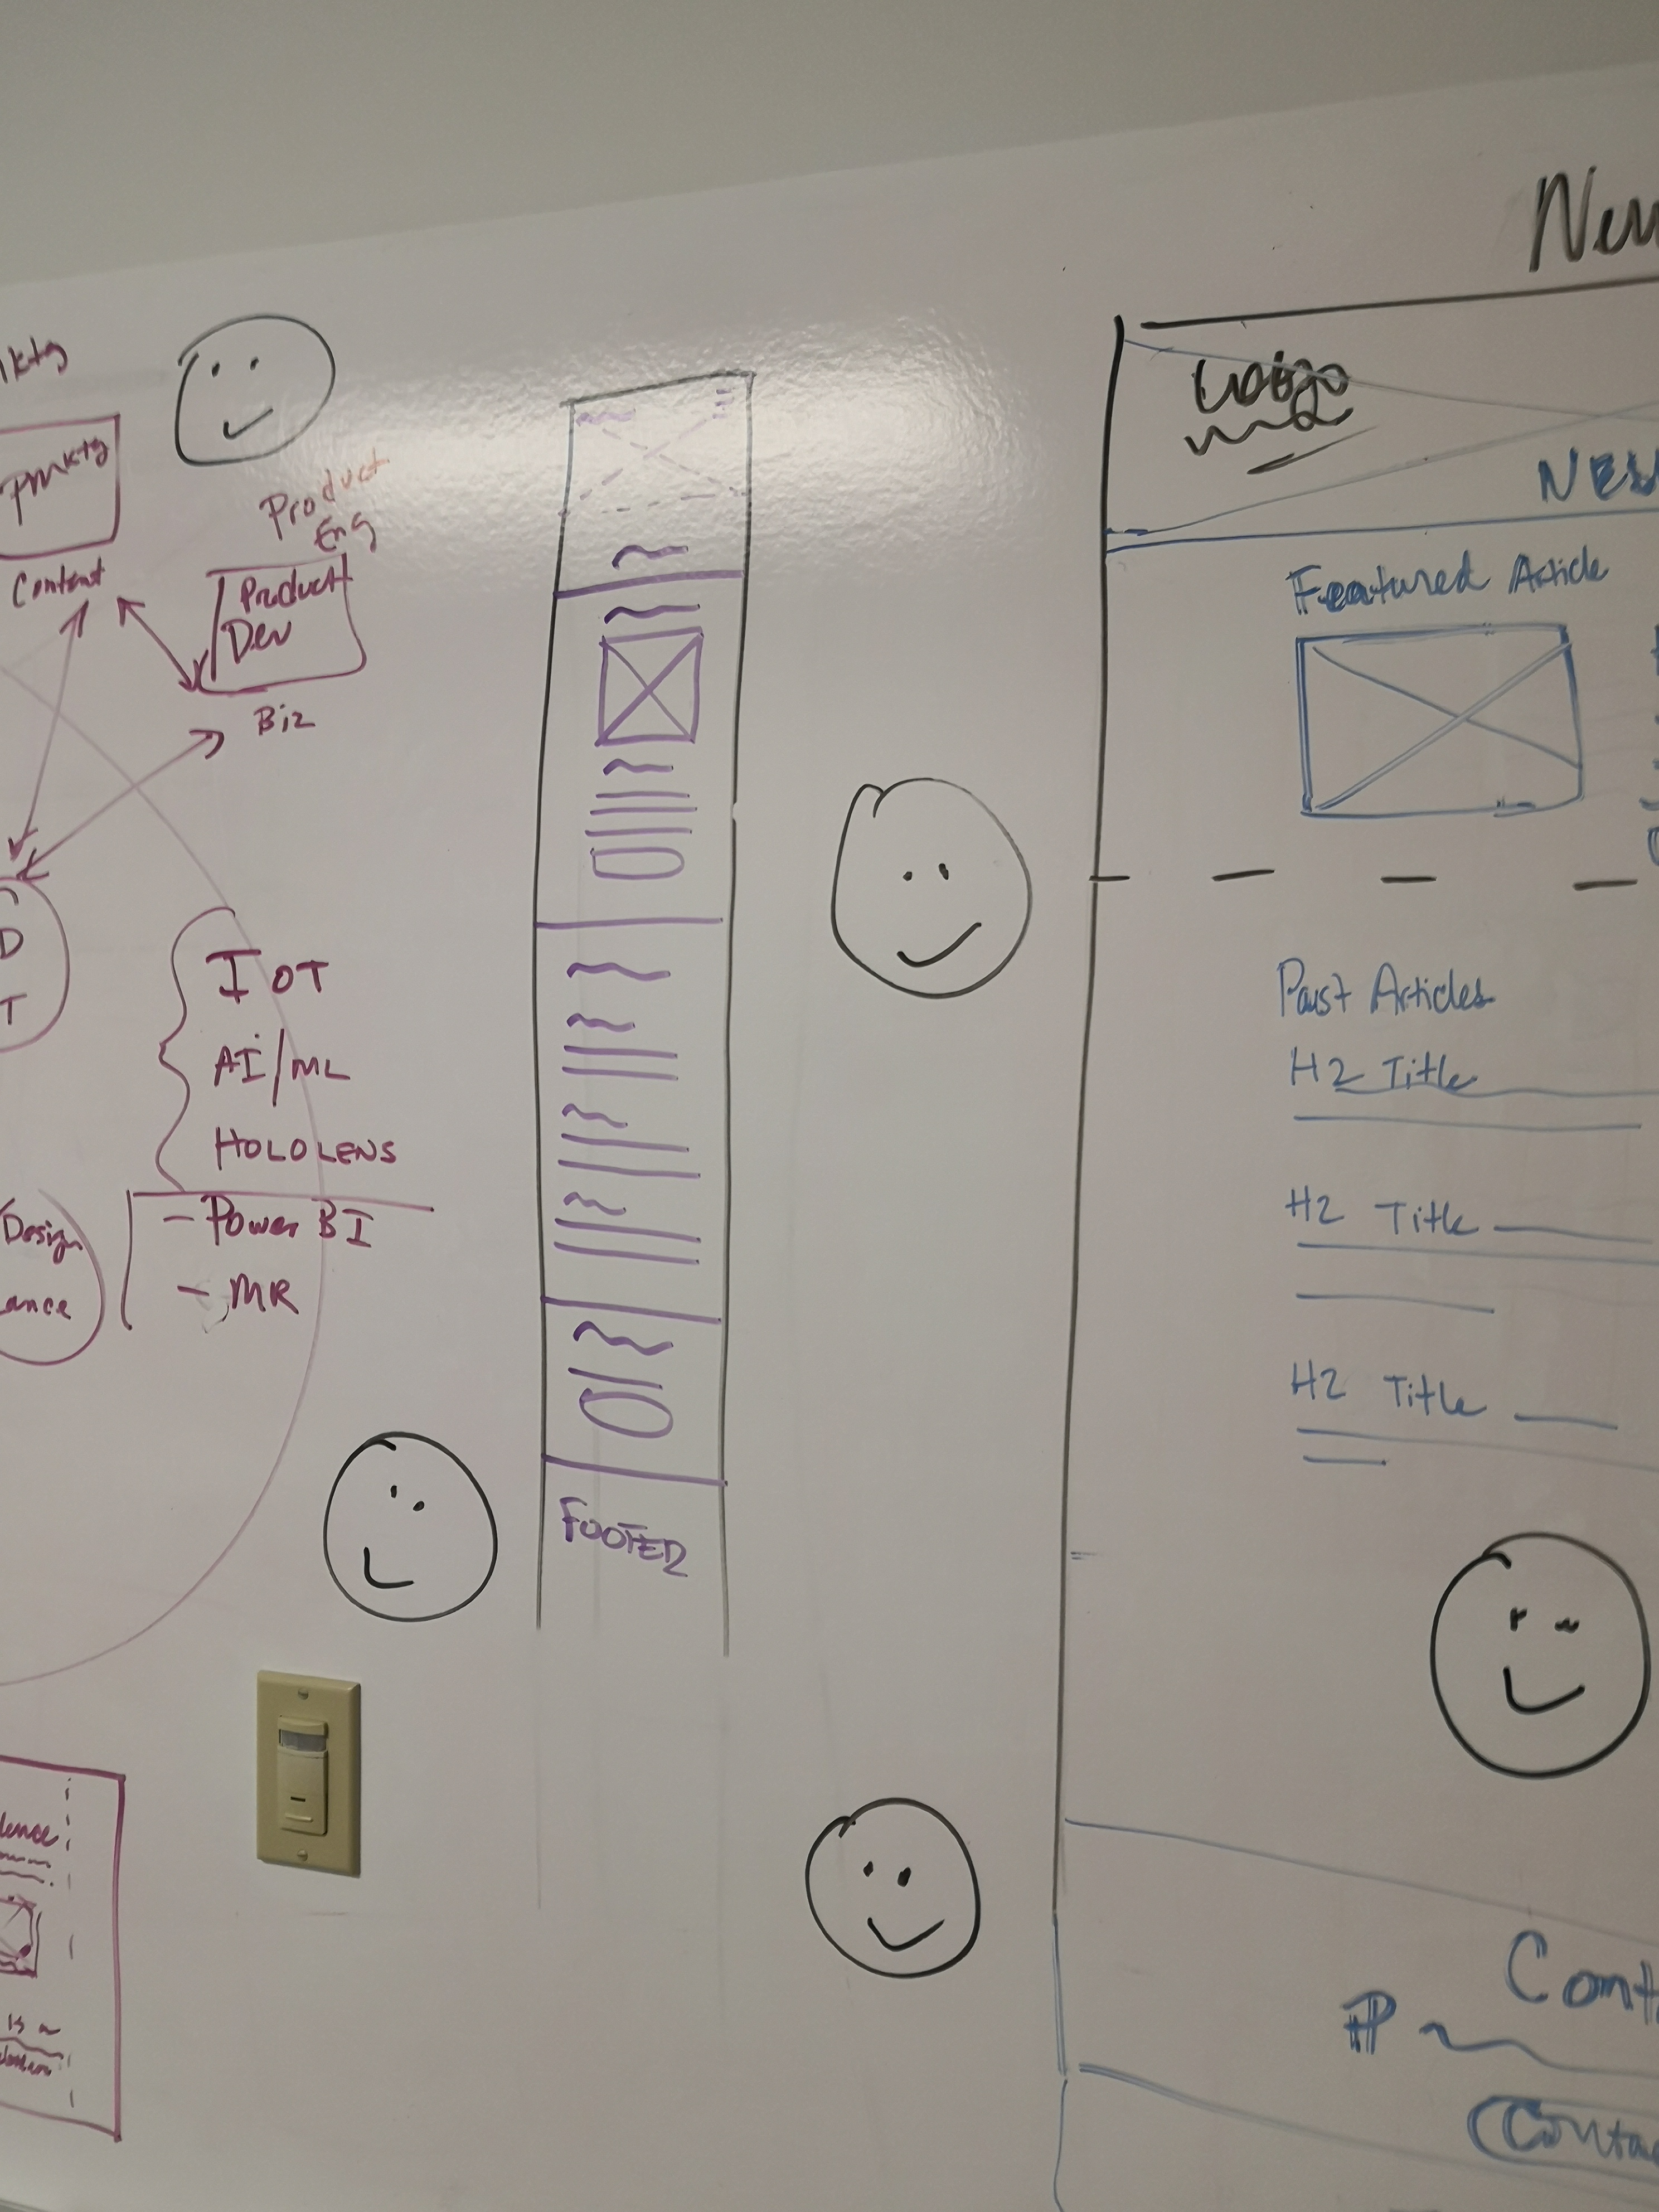 Pmktg
Content
Product
Eng
Product
Dev
Biz
D
T
IOT
AI/ML
HOLOLENS
- Power BI
- MR
Design
ance
lence
is a
FOOTER
New
Logo
NEW
Featured Article
Past Articles
H2 Title
H2 Title
H2 Title
Cont
Conta